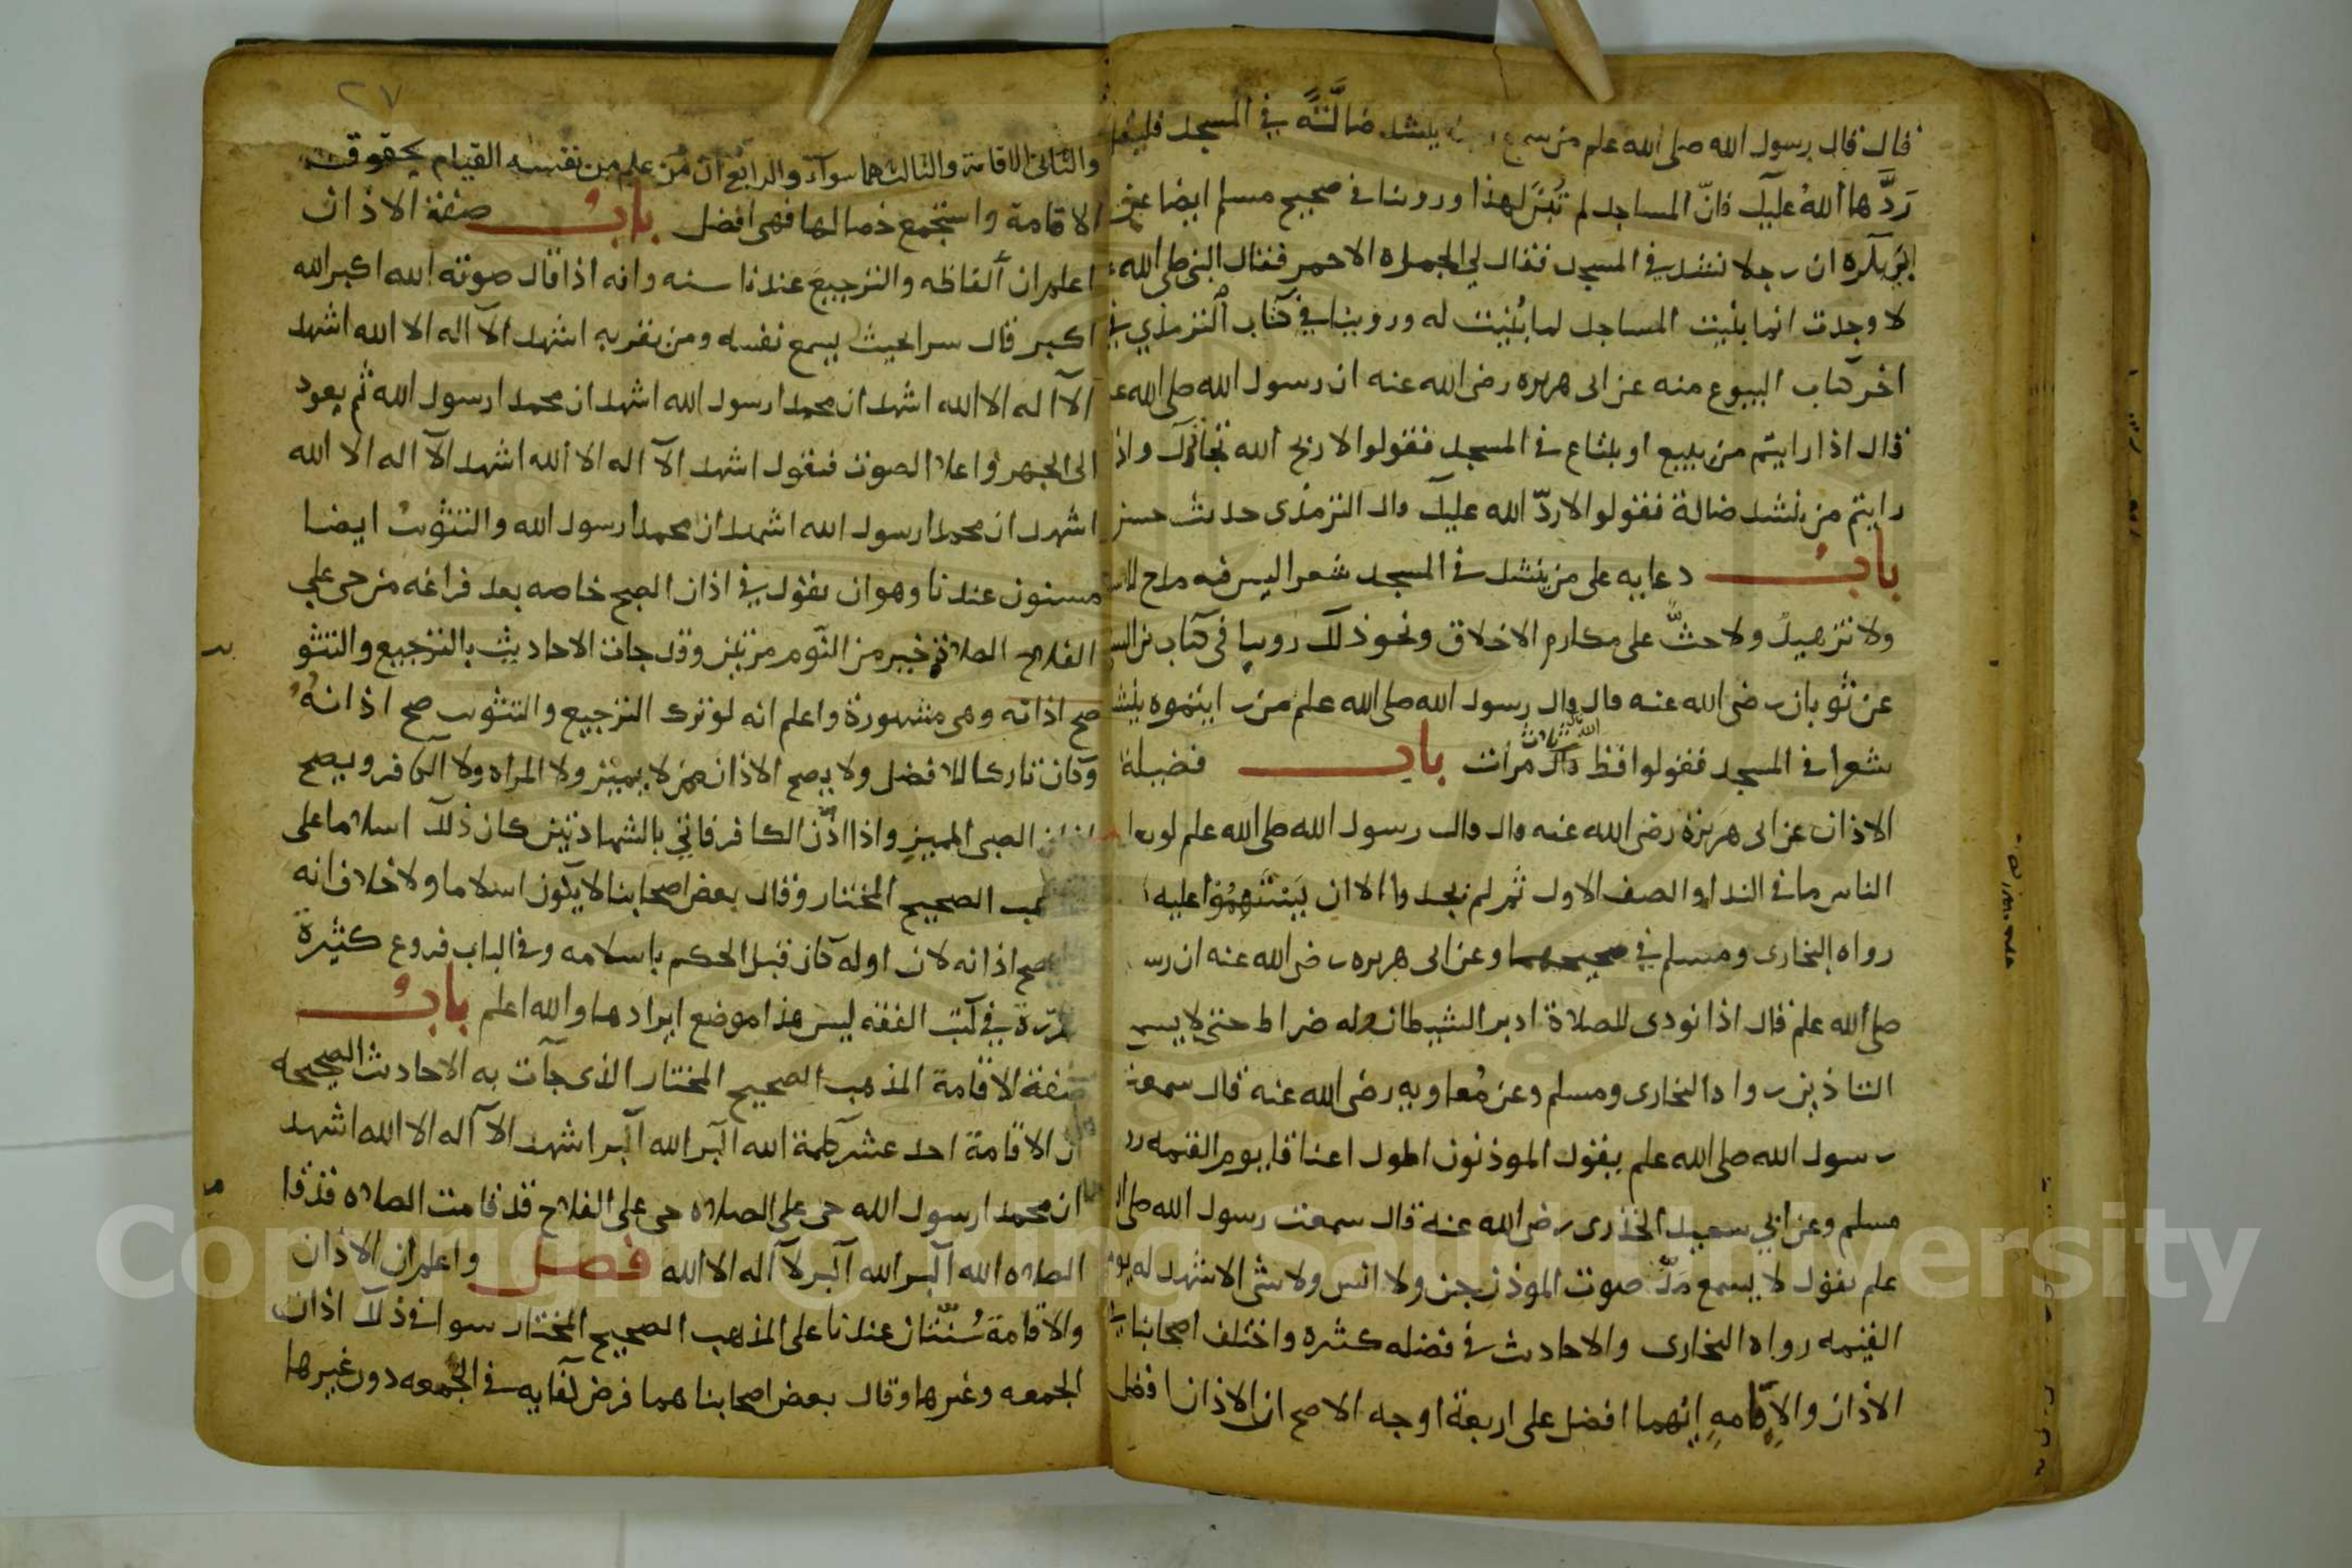 قال قال رسول الله صلى الله علم من سمع ينشد ضالَّتَهً في المسجد فليقل
رَدَّها اللهُ عليك فانّ المساجد لم تُبْنَ لهذا وروينا في صحيح مسلم ايضا عن
بُرَيْدة ان رجلا نشد في المسجد فقال الجمل الاحمر فقال النبي صلى الله
لا وجدت انما بُنيت المساجد لما بُنيت له وروينا في كتاب الترمذي في
اخر كتاب البيوع منه عن ابى هريره رضى الله عنه ان رسول الله صلى الله عـ
قال اذا رايتم من يبيع او يبتاع في المسجد فقولوا لا ربح الله تجارتك واذ
رايتم من ينشد ضالة فقولوا لا ردّ الله عليك قال الترمذى حديث حسن
بابُ دعايه على من ينشد في المسجد شعرا ليس فيه مدح للاسـ
ولا تزهيدُ ولا حثٌّ على مكارم الاخلاق ونحو ذلك روينا فى كتاب بن السـ
عن ثوبان رضى الله عنه قال قال رسول الله صلى الله علم من رايتموه ينشـ
شعرا في المسجد فقولوا فض الله فاك ثلاث مرات باب فضيلة
الاذان عن ابى هريرة رضى الله عنه قال قال رسول الله صلى الله علم لو يعلم
الناس ما في الندا والصف الاول ثم لم يجدوا الا ان يَسْتَهِمُوا عليه
رواه البخارى ومسلم في صحيحهما وعن ابى هريره رضى الله عنه ان رسـ
صلى الله علم قال اذا نودى للصلاة ادبر الشيطان وله ضراط حتى لا يسمع
التاذين رواه البخارى ومسلم وعن مُعاويه رضى الله عنه قال سمعت
رسول الله صلى الله علم يقول الموذنون اطول اعناقا يوم القيمه رو
مسلم وعن ابي سعيد الخذرى رضى الله عنه قال سمعت رسول الله صلى الـ
علم يقول لا يسمع مَدّ صوت الموذن جن ولا انس ولا شى الا شهد له يوم
القيمه رواه البخارى والاحاديث في فضله كثيره واختلف اصحابنا في
الاذان والاقامهِ ايهما افضل على اربعة اوجه الاصح ان الاذان افضل
٢٧
والثانى الاقامة والثالث هما سوآء والرابع ان من علم من نفسه القيام بحقوق
الاقامة واستجمع خصالها فهى افضل بابُ صفة الاذان
اعلم ان ألفاظه والترجيع عندنا سنه وانه اذا قال صوته الله اكبر الله
اكبر قال سرا بحيث يسمع نفسه ومن بقربه اشهد الآ اله الا الله اشهد
الآ اله الا الله اشهد ان محمدا رسول الله اشهد ان محمدا رسول الله ثم يعود
الى الجهر واعلا الصوت فيقول اشهد الآ اله الا الله اشهد الآ اله الا الله
اشهد ان محمدا رسول الله اشهد ان محمدا رسول الله والتثويب ايضا
مسنون عندنا وهو ان يقول في اذان الصبح خاصه بعد فراغه من حى على
الفلاح الصلاة خير من النّوم مرتين وقد جات الاحاديث بالترجيع والتثو
صح اذانه وهى مشهورة واعلم انه لو ترك الترجيع والتثويب صح اذانهُ
وكان تاركا للافضل ولا يصح الاذان ممن لا يميز ولا المراه ولا الكافر ويصح
اذان الصبى المميز واذا اذّن الكافر فاتي بالشهادتين كان ذلك اسلاما على
الصحيح المختار وقال بعض اصحابنا لا يكون اسلاما ولا خلاف انه
يصح اذانه لان اوله كان قبل الحكم باسلامه وفي الباب فروع كثيرة
في كتب الفقه ليس هذا موضع ايرادها والله اعلم بابُ
صفة الاقامة المذهب الصحيح المختار الذى جآت به الاحاديث الصحيحه
ان الاقامة احد عشر كلمة الله اكبر الله اكبر اشهد الآ اله الا الله اشهد
ان محمدا رسول الله حى على الصلاه حى على الفلاح قد قامت الصلاه قد قا
الصلاه الله اكبر الله اكبر لا اله الا الله فصل واعلم ان الاذان
والاقامة سُنّتان عندنا على المذهب الصحيح المختار سوا في ذلك اذان
الجمعه وغيرها وقال بعض اصحابنا هما فرض كفايه في الجمعه دون غيرها
Copyright © King Saud University